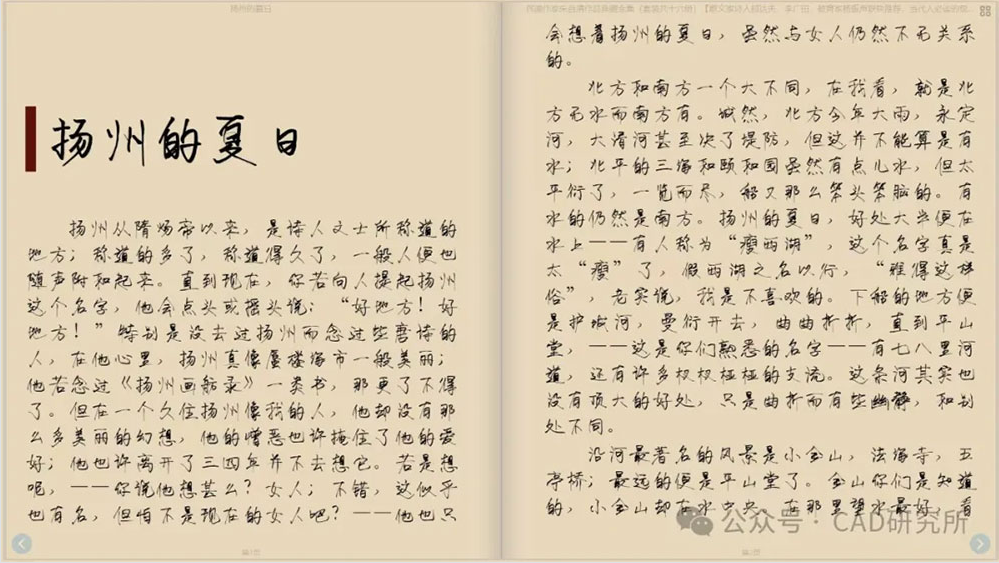 扬州的夏日
扬州的夏日
扬州从隋炀帝以来，是诗人文士所称道的
地方；称道的多了，称道得久了，一般人便也
随声附和起来。直到现在，你若向人提起扬州
这个名字，他会点头或摇头说：“好地方！好
地方！”特别是没去过扬州而念过些唐诗的
人，在他心里，扬州真像蜃楼海市一般美丽；
他若念过《扬州画舫录》一类书，那更了不得
了。但在一个久住扬州像我的人，他却没有那
么多美丽的幻想，他的憎恶也许掩住了他的爱
好；他也许离开了三四年并不去想它。若是想
呢，——你说他想甚么？女人；不错，这似乎
也有名，但怕不是现在的女人吧？——他也只
会想着扬州的夏日，虽然与女人仍然不无关系
的。
北方和南方一个大不同，在我看，就是北
方无水而南方有。诚然，北方今年大雨，永定
河，大清河甚至决了堤防，但这并不能算是有
水；北平的三海和颐和园虽然有点儿水，但太
平衍了，一览而尽，船又那么笨头笨脑的。有
水的仍然是南方。扬州的夏日，好处大半便在
水上——有人称为“瘦西湖”，这个名字真是
太“瘦”了，假西湖之名以行，“雅得这样
俗”，老实说，我是不喜欢的。下船的地方便
是护城河，曼衍开去，曲曲折折，直到平山
堂，——这是你们熟悉的名字——有七八里河
道，还有许多杈杈桠桠的支流。这条河其实也
没有顶大的好处，只是曲折而有些幽静，和别
处不同。
沿河最著名的风景是小金山，法海寺，五
亭桥；最远的便是平山堂了。金山你们是知道
的，小金山却在水中央。在那里望水最好，看
公众号·CAD研究所